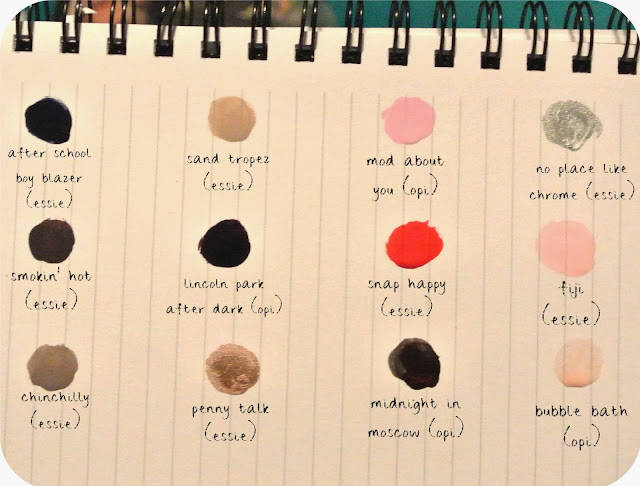 after school
boy blazer
(essie)
sand tropez
(essie)
mod about
you (opi)
no place like
chrome (essie)
smokin' hot
(essie)
lincoln park
after dark (opi)
snap happy
(essie)
fiji
(essie)
chinchilly
(essie)
penny talk
(essie)
midnight in
moscow (opi)
bubble bath
(opi)